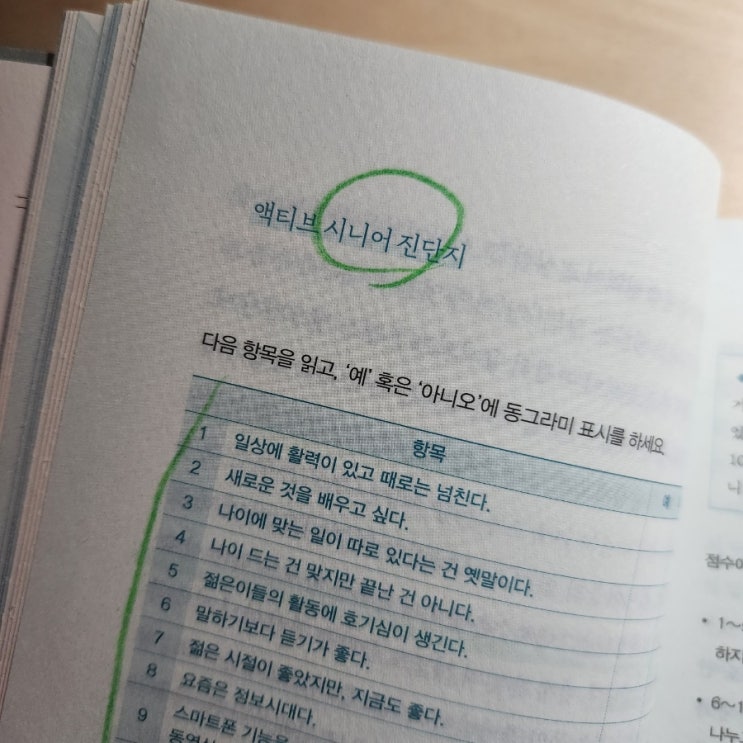 액티브 시니어 진단지
다음 항목을 읽고, '예' 혹은 '아니오'에 동그라미 표시를 하세요
항목
예
1 일상에 활력이 있고 때로는 넘친다.
2 새로운 것을 배우고 싶다.
3 나이에 맞는 일이 따로 있다는 건 옛말이다.
4 나이 드는 건 맞지만 끝난 건 아니다.
5 젊은이들의 활동에 호기심이 생긴다.
6 말하기보다 듣기가 좋다.
7 젊은 시절이 좋았지만, 지금도 좋다.
8 요즘은 정보시대다.
9 스마트폰 기능을
10
나
점수
• 1~
하지
• 6~1
나누